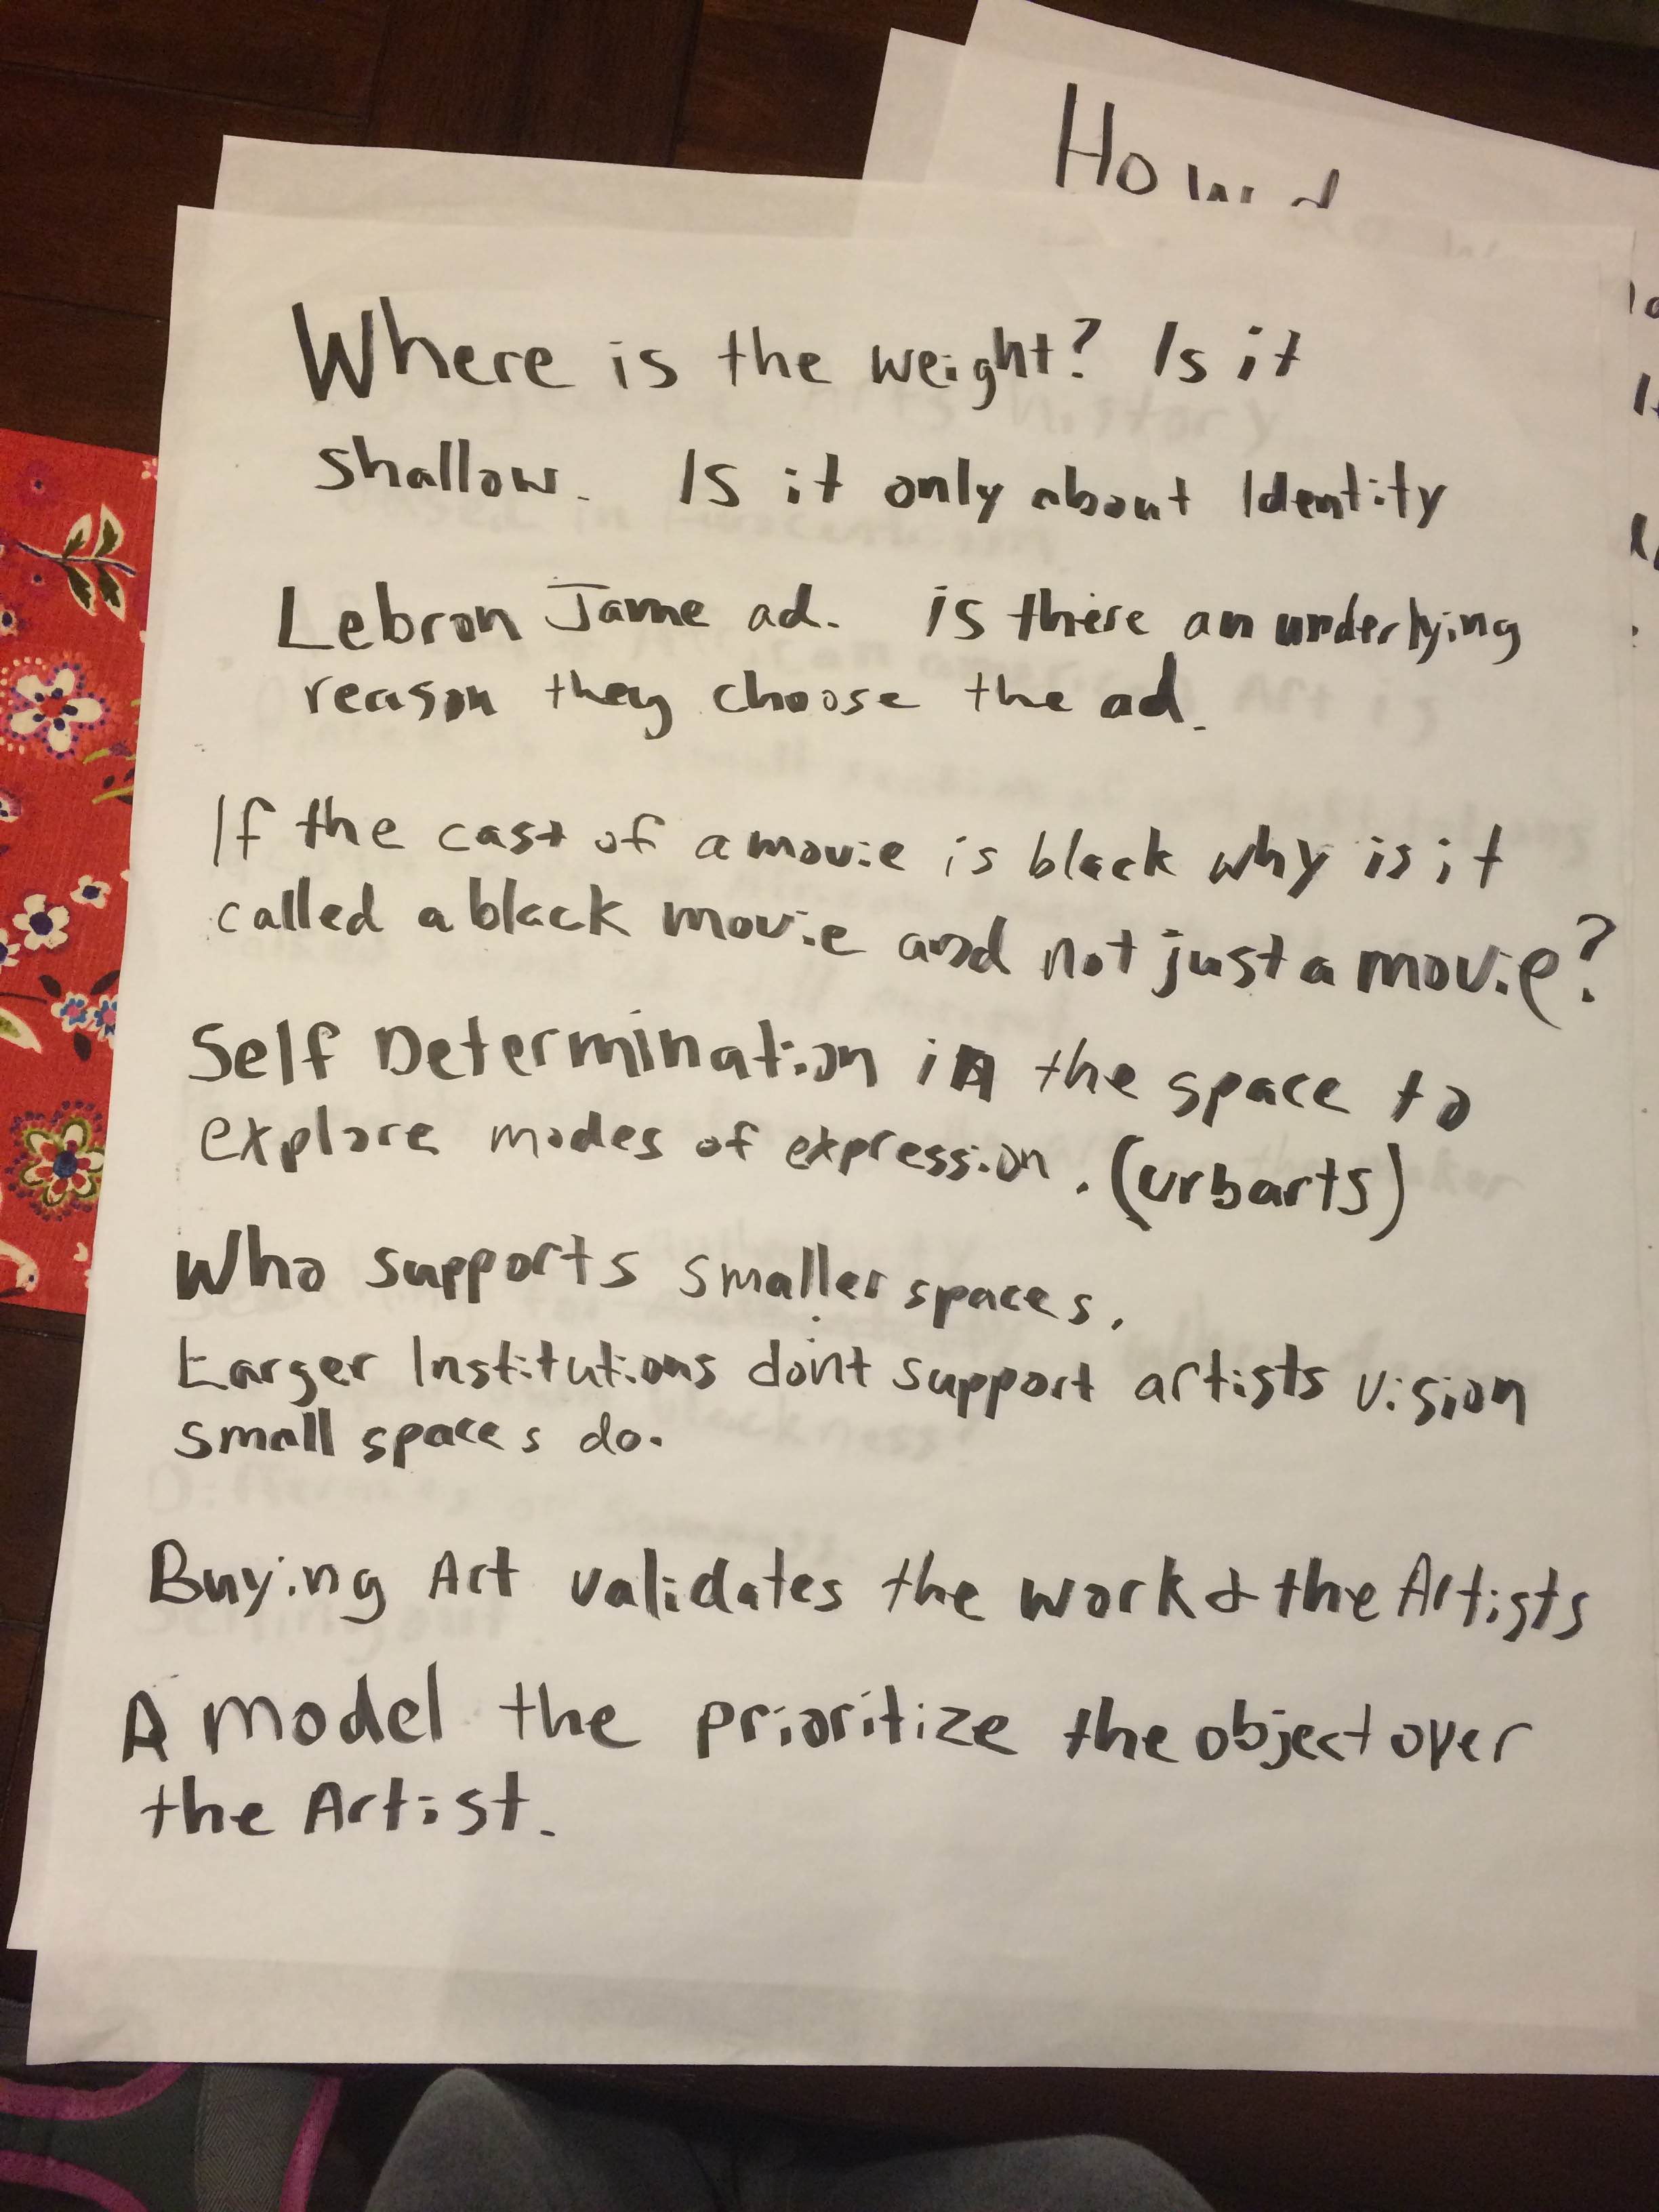 Where is the weight? Is it
shallow. Is it only about Identity
Lebron Jame ad. is there an underlying
reason they choose the ad.
If the cast of a movie is black why is it
called a black movie and not just a movie?
Self Determination in the space to
explore modes of expression. (urbarts)
Who supports smaller spaces.
Larger Institutions don't support artists vision
small spaces do.
Buying Art validates the work & the Artists
A model the prioritize the object over
the Artist.